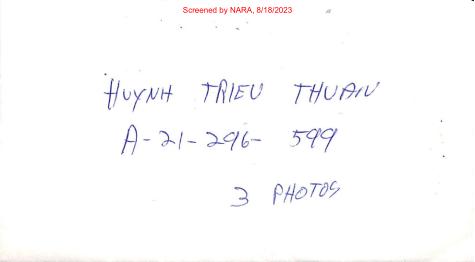 Screened by NARA, 8/18/2023
HUYNH TRIEU THUAN
A-21-296-599
3 PHOTOS